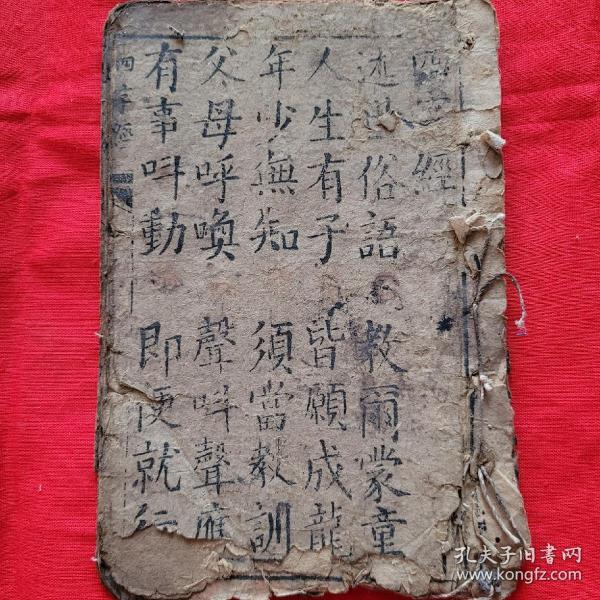 四字經
述世俗語 教爾蒙童
人生有子 皆願成龍
年少無知 須當教訓
父母呼喚 聲呌聲應
有事呌動 即便就行
四字經
孔夫子旧書网
www.kongfz.com